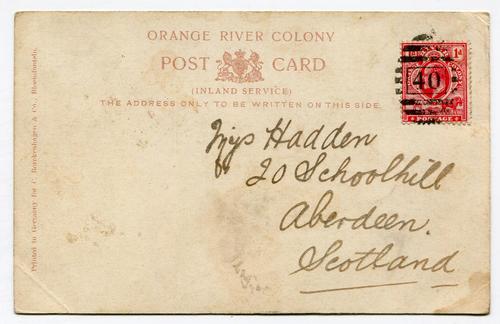 ORANGE RIVER COLONY
POST CARD
(INLAND SERVICE)
THE ADDRESS ONLY TO BE WRITTEN ON THIS SIDE.
1d
40
POSTAGE
Hadden
20 Schoolhill
Aberdeen.
Scotland
Printed in Germany for C. Borckenhagen & Co., Bloemfontein.